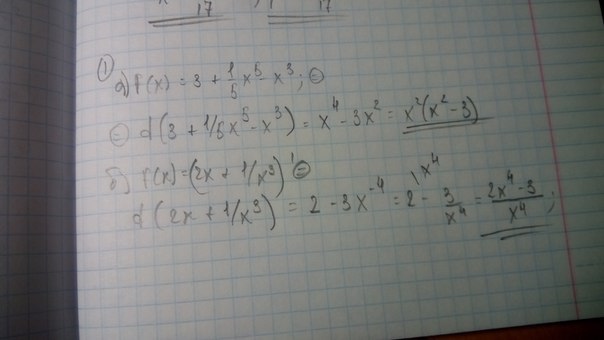 17 17
①
а) f(x) = 3 + 1/5 x^5 - x^3; ⊜
⊜ d(3 + 1/5x^5 - x^3) = x^4 - 3x^2 = x^2(x^2 - 3)
б) f(x) = (2x + 1/x^3)' ⊜
d(2x + 1/x^3) = 2 - 3x^-4 = 2\x^4 - 3/x^4 = (2x^4 - 3)/x^4;